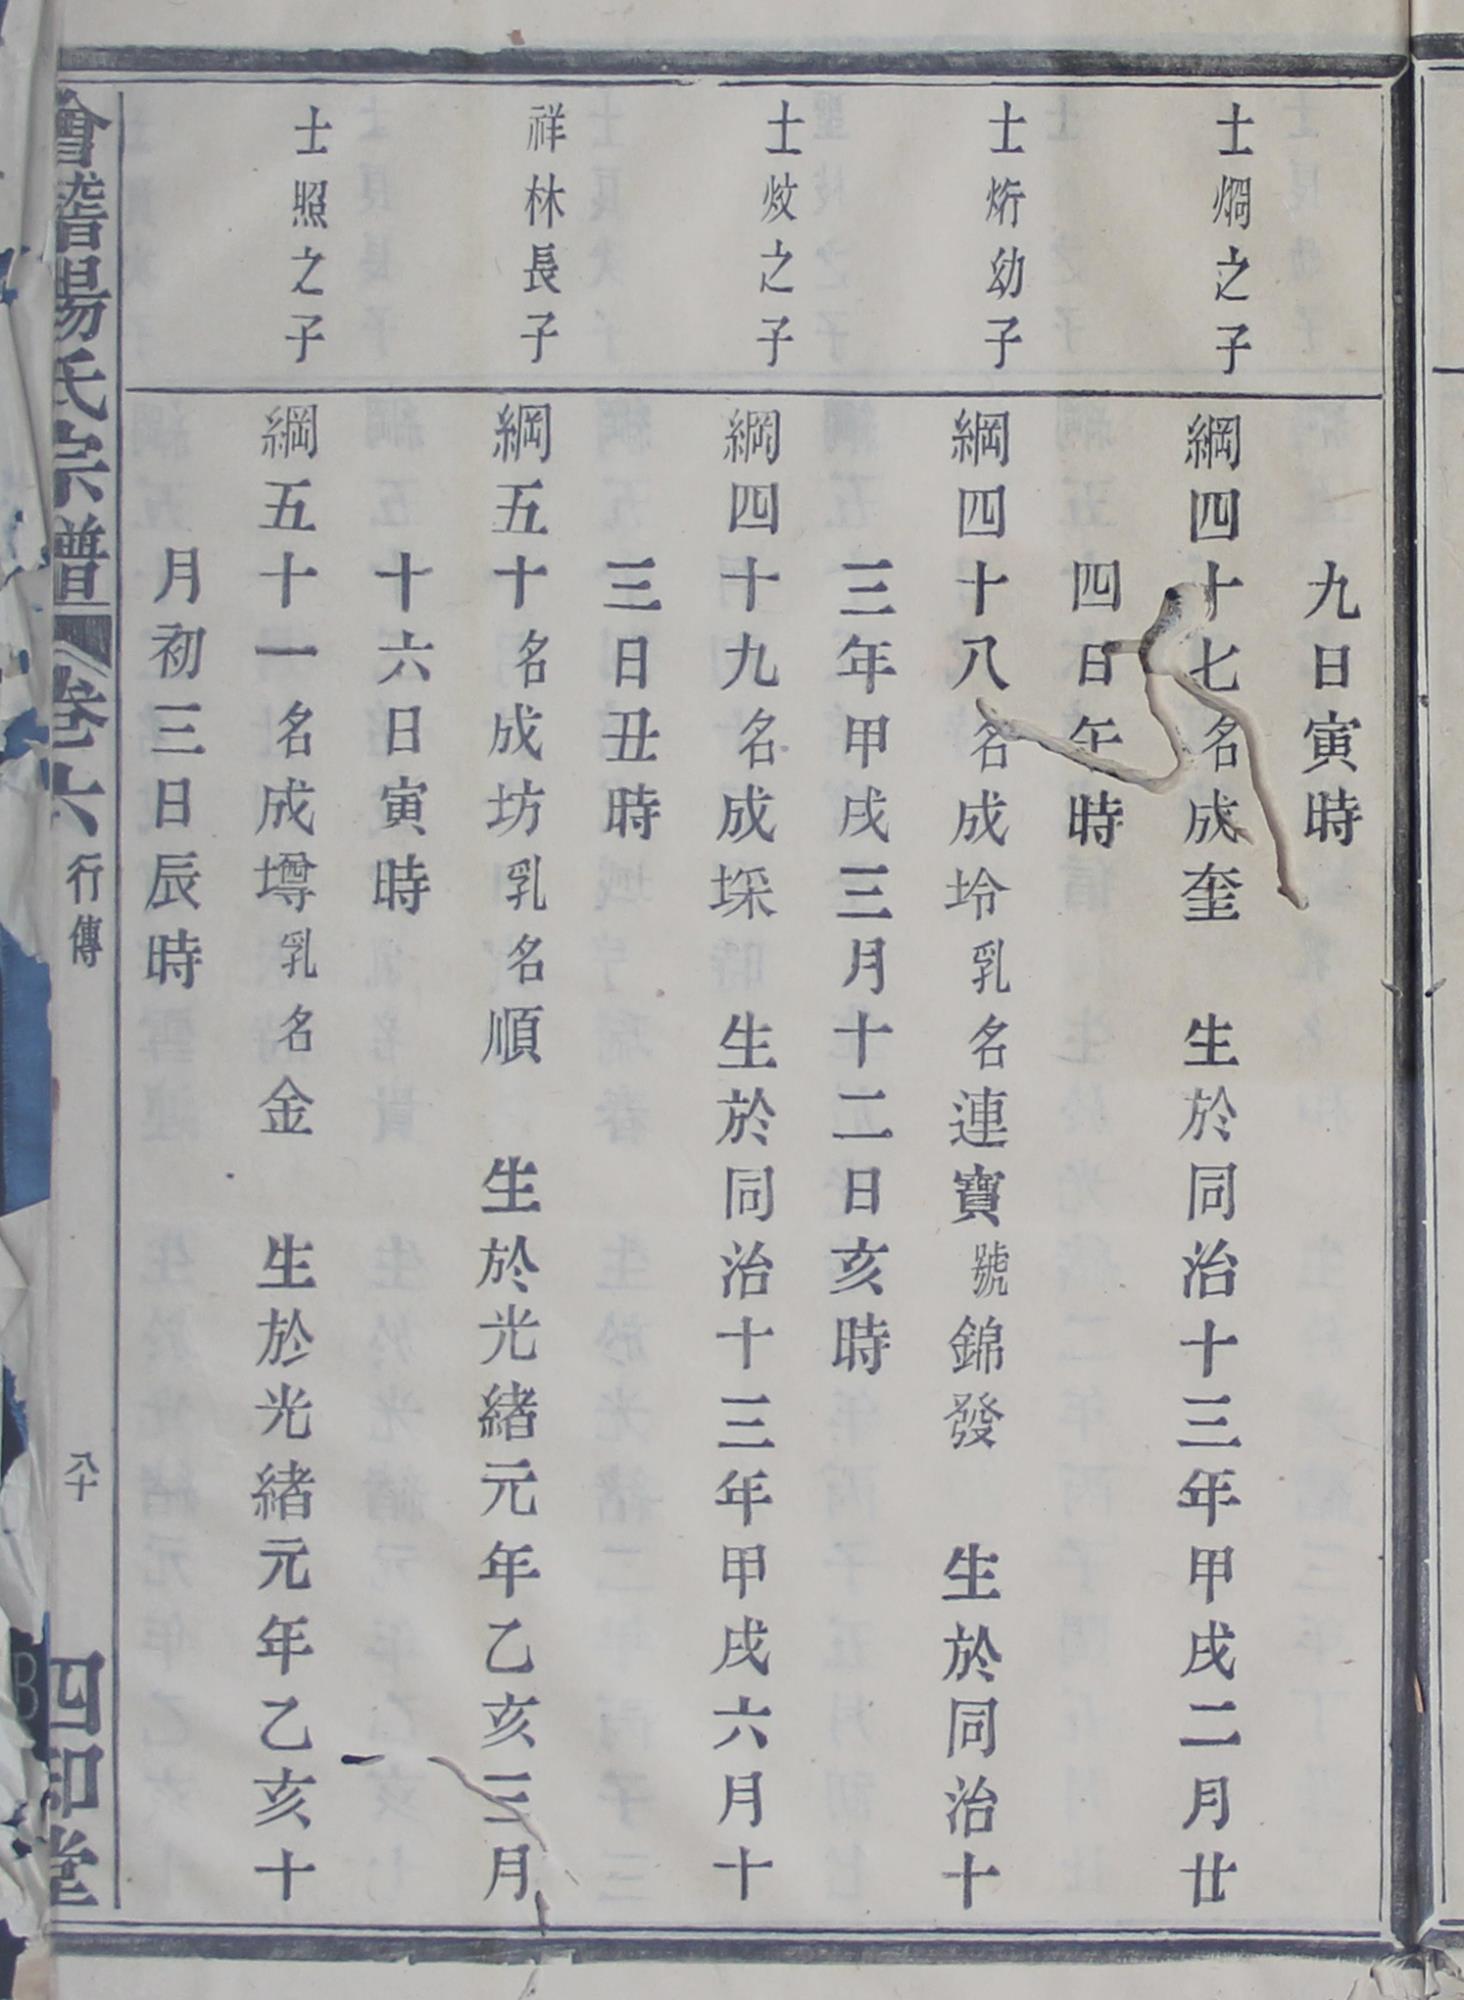 九日寅時
士焵之子
綱四十七名成奎 生於同治十三年甲戌二月廿
四日午時
士烆幼子
綱四十八名成坽乳名連寶號錦發 生於同治十
三年甲戌三月十二日亥時
士炆之子
綱四十九名成埰 生於同治十三年甲戌六月十
三日丑時
祥林長子
綱五十名成坊乳名順 生於光緒元年乙亥三月
十六日寅時
士照之子
綱五十一名成墫乳名金 生於光緒元年乙亥十
月初三日辰時
會稽楊氏宗譜 卷六 行傳 八十 四知堂